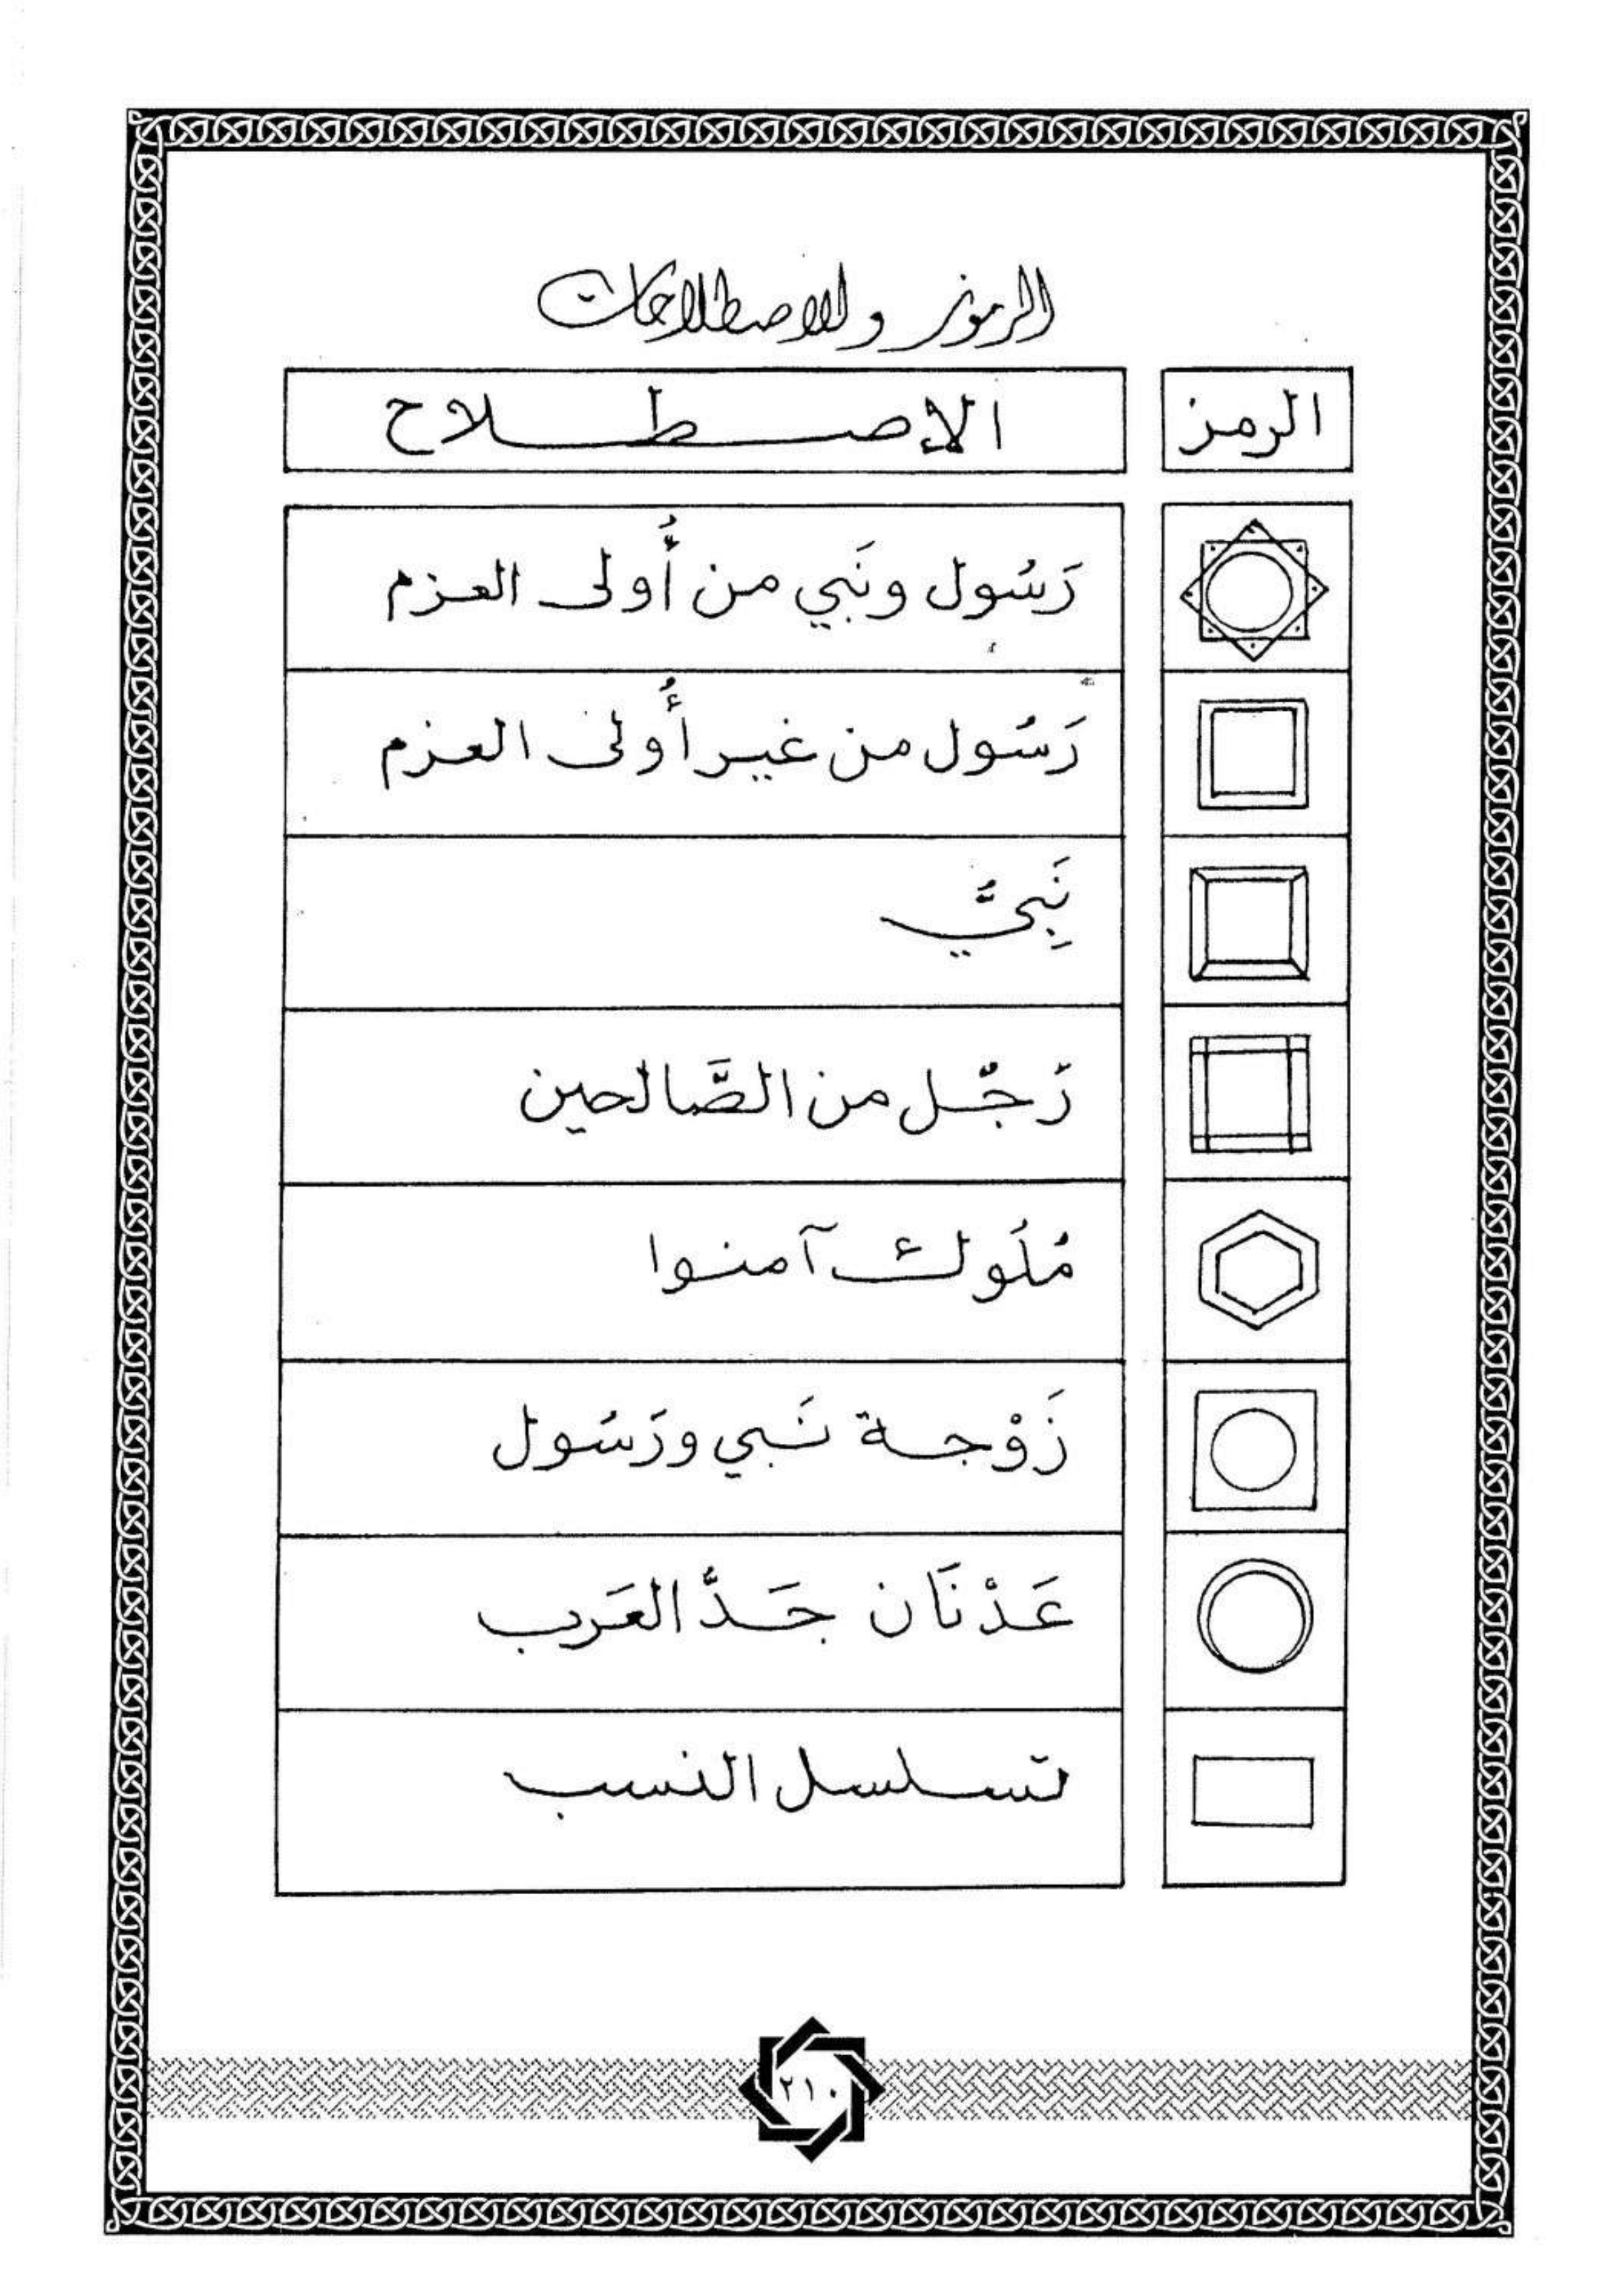 الرموز والاصطلاحات
الرمز
الإصطلاح
رَسُول ونَبي من أُولى العزم
رَسُول من غير أُولى العزم
نَبِيُّ
رَجُل من الصَّالحين
مُلُوك آمنوا
زَوْجة نَبي ورَسُول
عَدْنَان جَدُّ العَرب
تسلسل النسب
٢١٠